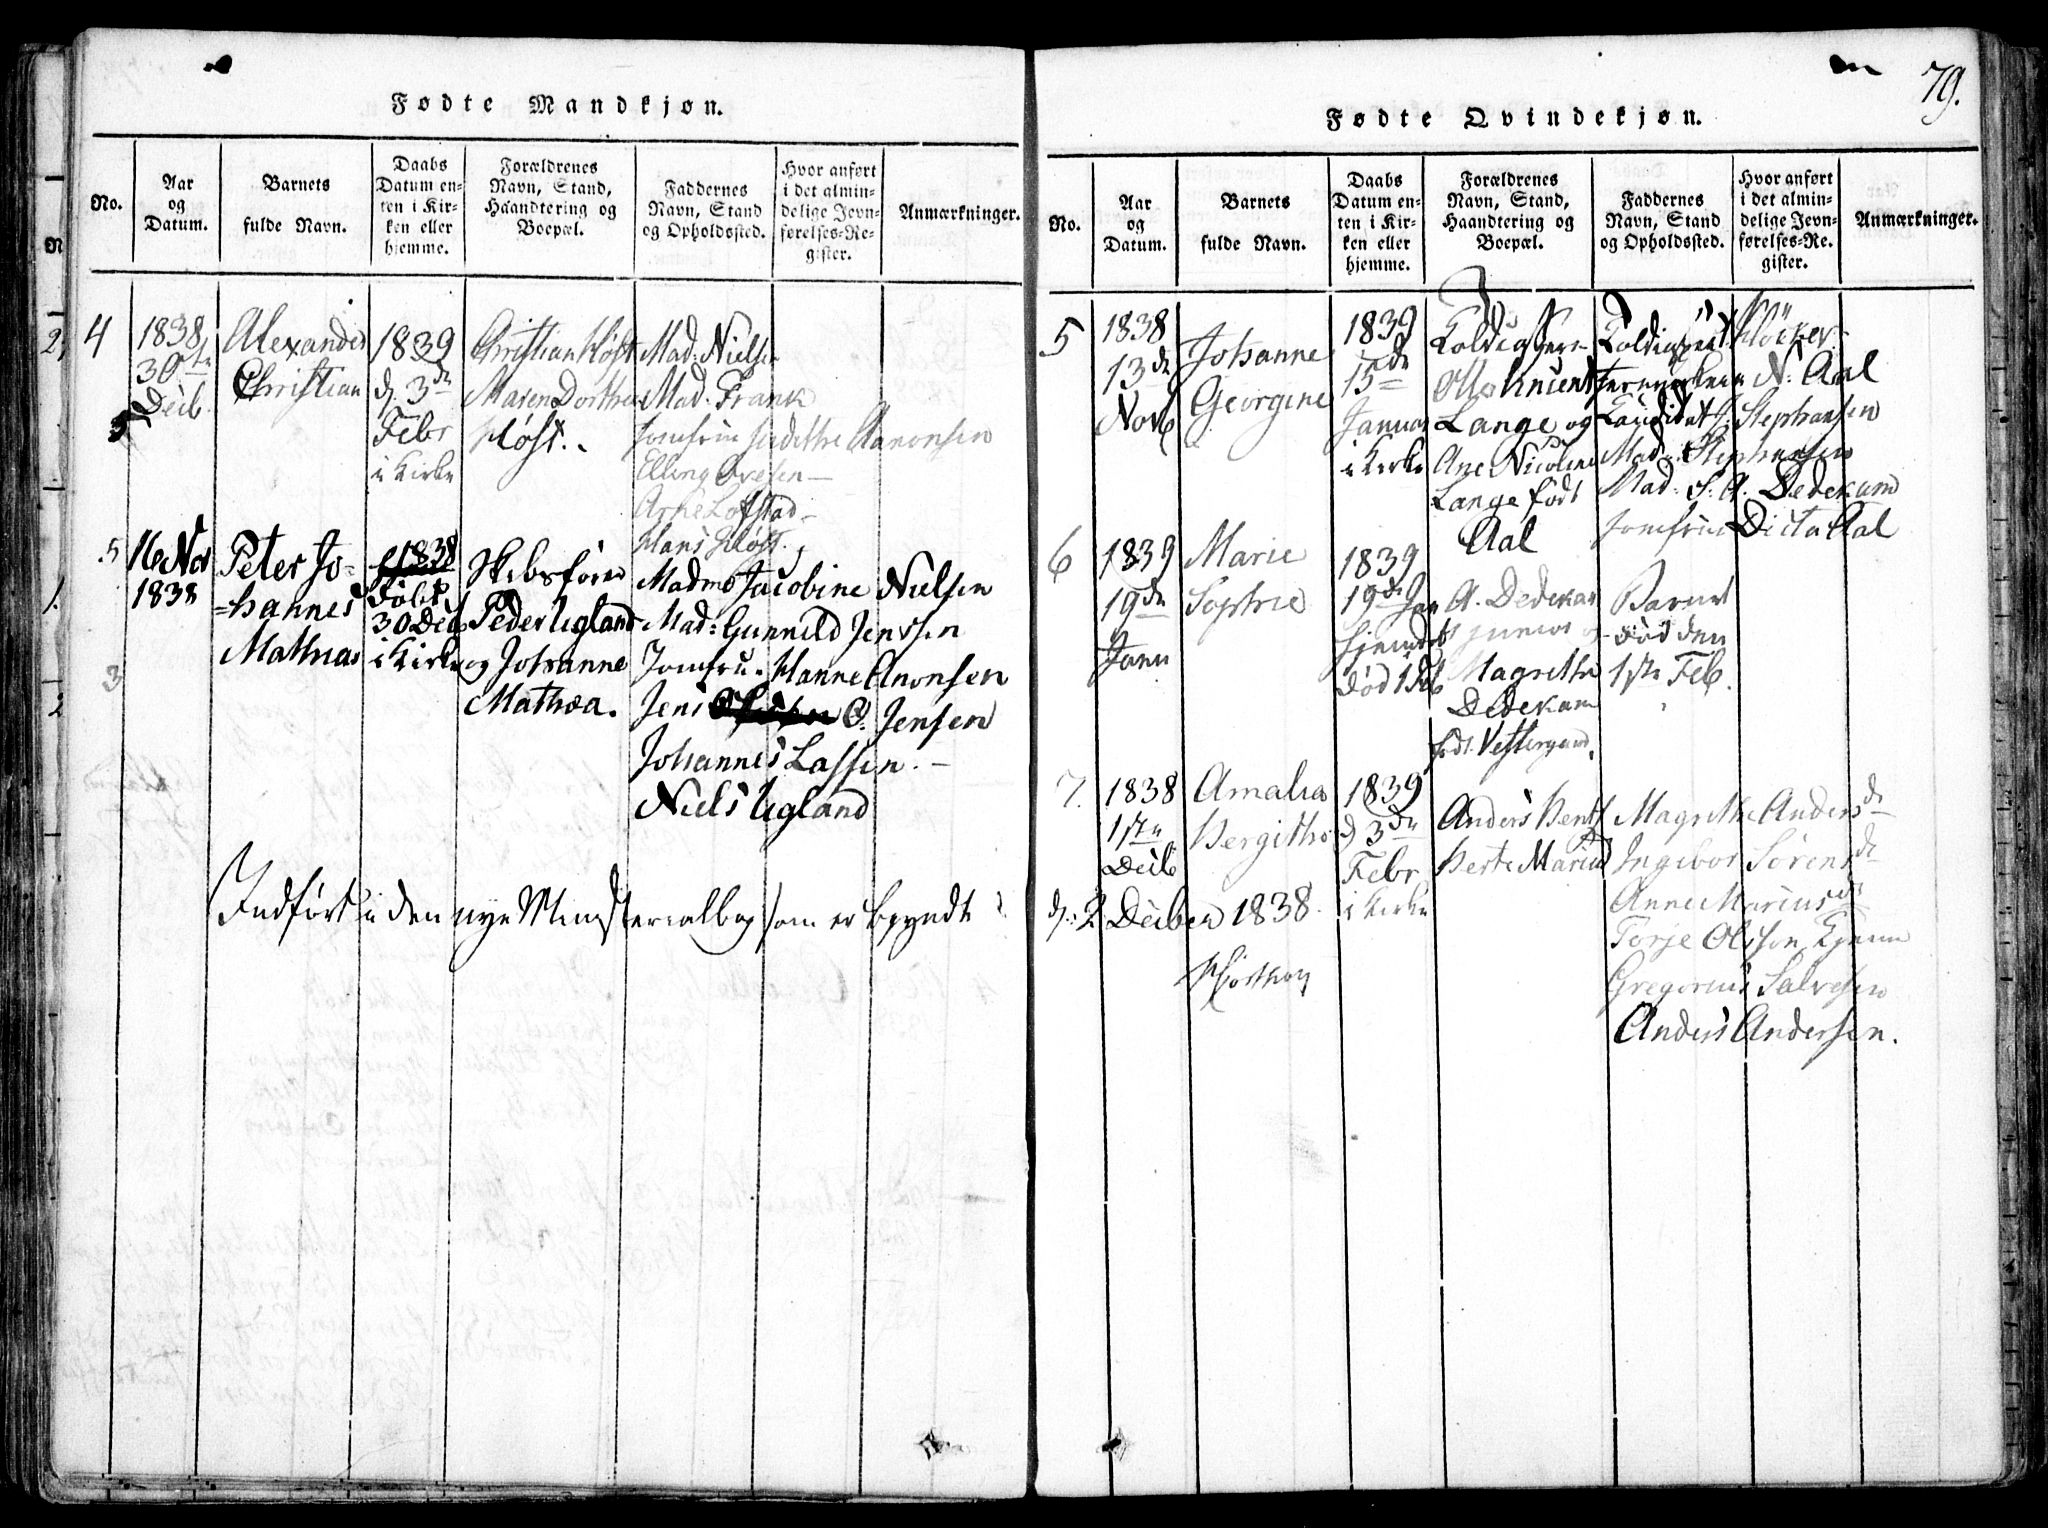 Fødte Mandkjøn.
No.
Aar
og
Datum.
Barnets
fulde Navn.
Daabs
Datum en-
ten i Kir-
ken eller
hjemme.
Forældrenes
Navn, Stand,
Haandtering og
Boepæl.
Faddernes
Navn, Stand
og Opholdssted.
Hvor anført
i det almin-
delige Jevn-
førelses-Re-
gister.
Anmærkninger.
4
1838
30te
Decb.
Alexander
Christian
1839
d. 3de
Febr
i Kirke
Christian Høst
Maren Dorthea
Høst.
Mad: Nielsen
Mad. Frank
Jomfrue Aanonsen
Elling
Arne Løfstad
Hans Høst.
5
16 Nov
1838
Peter Jo-
=hannes
Mathias
1838
Døbt
30 Decb
i Kirke
Skibsfører
Peder Ugland
og Johanne
Mathea.
Madme Jacobine Nielsen
Mad: Gunnild Jenssen
Jomfru. Hanne Anonsen
Jens O. Jensen
Johannes Lassen.
Niels Ugland
Indført i den nye Ministerialbog som er begyndt
79.
Fødte Qvindekjøn.
No.
Aar
og
Datum.
Barnets
fulde Navn.
Daabs
Datum en-
ten i Kir-
ken eller
hjemme.
Forældrenes
Navn, Stand,
Haandtering og
Boepæl.
Faddernes
Navn, Stand
og Opholdssted.
Hvor anført
i det almin-
delige Jevn-
førelses-Re-
gister.
Anmærkninger.
5
1838
13de
Novb
Johanne
Georgine
1839
15de
Januar
i Kirke
Otto
Lange og
Ane Nicoline
Lange født
Aal
Kløcker
N: Aal
Candidat J. Stephansen
Mad: Stephansen
Mad: S: A. Dedekam
Jomfrue Dicta Aal
6
1839
19de
Janu
Marie
Sophie
1839
19de Jan
hjemdøbt
død 1 Feb
A. Dedekam
junior og
Magrethe
Dedekam
født Vestergaard.
Barnet
død den
1ste Feb.
7.
1838
1ste
Decb
Amalia
Bergithe
1839
d 3de
Febr
i Kirke
Anders Bents
Berte Maria
Magrethe Andersdr
Ingebor Sørensdr
Anne Mariusdr
Torje Olsson
Gregorius Salvesen
Anders Andersen.
d: 2 Decber 1838.